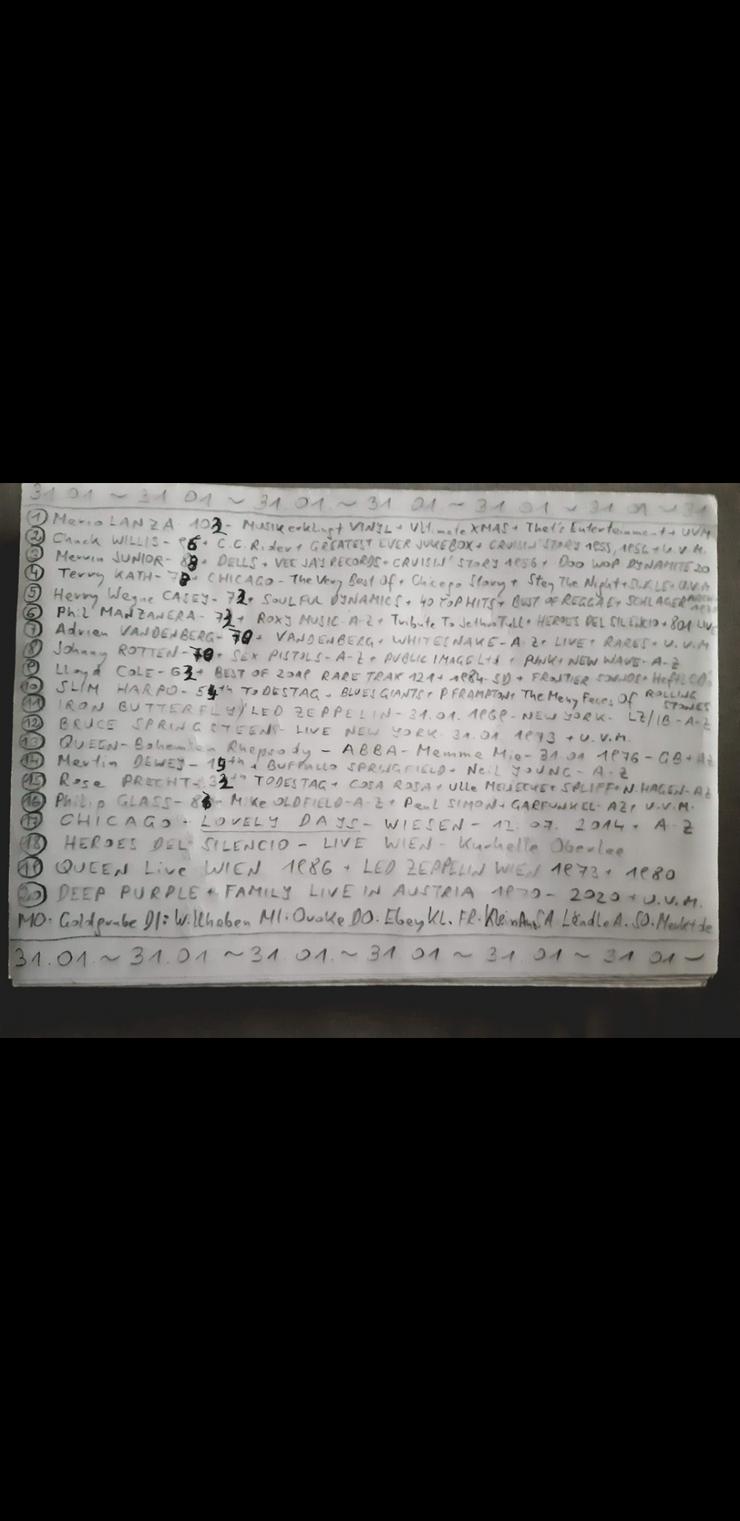 31.01 ~ 31.01 ~ 31.01. ~ 31.01 ~ 31.01 ~ 31.01 ~ 31
① Mario LANZA 103 - MUSIK erklingt VINYL + Ultimate XMAS + That's Entertainment + UVM
② Chuck WILLIS - 96 + C.C. Rider + GREATEST EVER JUKEBOX + CRUISIN' STORY 1955, 1956 + U.V.M.
③ Mervin JUNIOR - 88 + DELLS + VEE JAY RECORDS + CRUISIN' STORY 1956 + DOO WOP DYNAMITE 20
④ Terry KATH - 78 + CHICAGO - The Very Best Of + Chicago Story + Stay The Night +
⑤ Harry Wayne CASEY - 73 + SOULFUL DYNAMICS + 40 TOP HITS + BEST OF REGGAE + SCHLAGER
⑥ Phil MANZANERA - 73 + ROXY MUSIC - A-Z + Tribute To Jethro Tull + HEROES DEL SILENCIO + 801 LIVE
⑦ Adrian VANDENBERG - 70 + VANDENBERG + WHITESNAKE - A-Z + LIVE + RARES + U.V.M
⑧ Johnny ROTTEN - 70 + SEX PISTOLS - A-Z + PUBLIC IMAGE Ltd + PUNK + NEW WAVE - A-Z
⑨ Lloyd COLE - 63 + BEST OF 2019 RARE TRAX 121 + 1984 - SD + FRONTIER
⑩ SLIM HARPO - 54th TODESTAG + BLUES GIANTS + P. FRAMPTON + The Many Faces Of ROLLING STONES
⑪ IRON BUTTERFLY / LED ZEPPELIN - 31.01.1969 - NEW YORK - LZ/IB - A-Z
⑫ BRUCE SPRINGSTEEN - LIVE NEW YORK 31.01.1973 + U.V.M.
⑬ QUEEN - Bohemian Rhapsody - ABBA - Mamma Mia - 31.01.1976 - GB + AZ
⑭ Martin DEWEY - 15th + BUFFALLO SPRINGFIELD + Neil YOUNG - A-Z
⑮ Rose PRECHT - 32th TODESTAG + COSA ROSA + Ulla MEINECKE + SPLIFF + N. HAGEN - AZ
⑯ Philip GLASS - + Mike OLDFIELD - A-Z + Paul SIMON + GARFUNKEL - AZ + U.V.M.
⑰ CHICAGO - LOVELY DAYS - WIESEN - 12.07.2014 + A-Z
⑱ HEROES DEL SILENCIO - LIVE WIEN - Kurhalle Oberlaa
⑲ QUEEN Live WIEN 1986 + LED ZEPPELIN WIEN 1973 + 1980
⑳ DEEP PURPLE + FAMILY LIVE IN AUSTRIA 1970 - 2020 + U.V.M.
MO: Goldgrube DI: Willhaben MI: Quoka DO: Ebay KL. FR: Klein Anz. SA. Ländle A. SO. Markt.de
31.01. ~ 31.01 ~ 31.01. ~ 31.01 ~ 31.01 ~ 31.01 ~